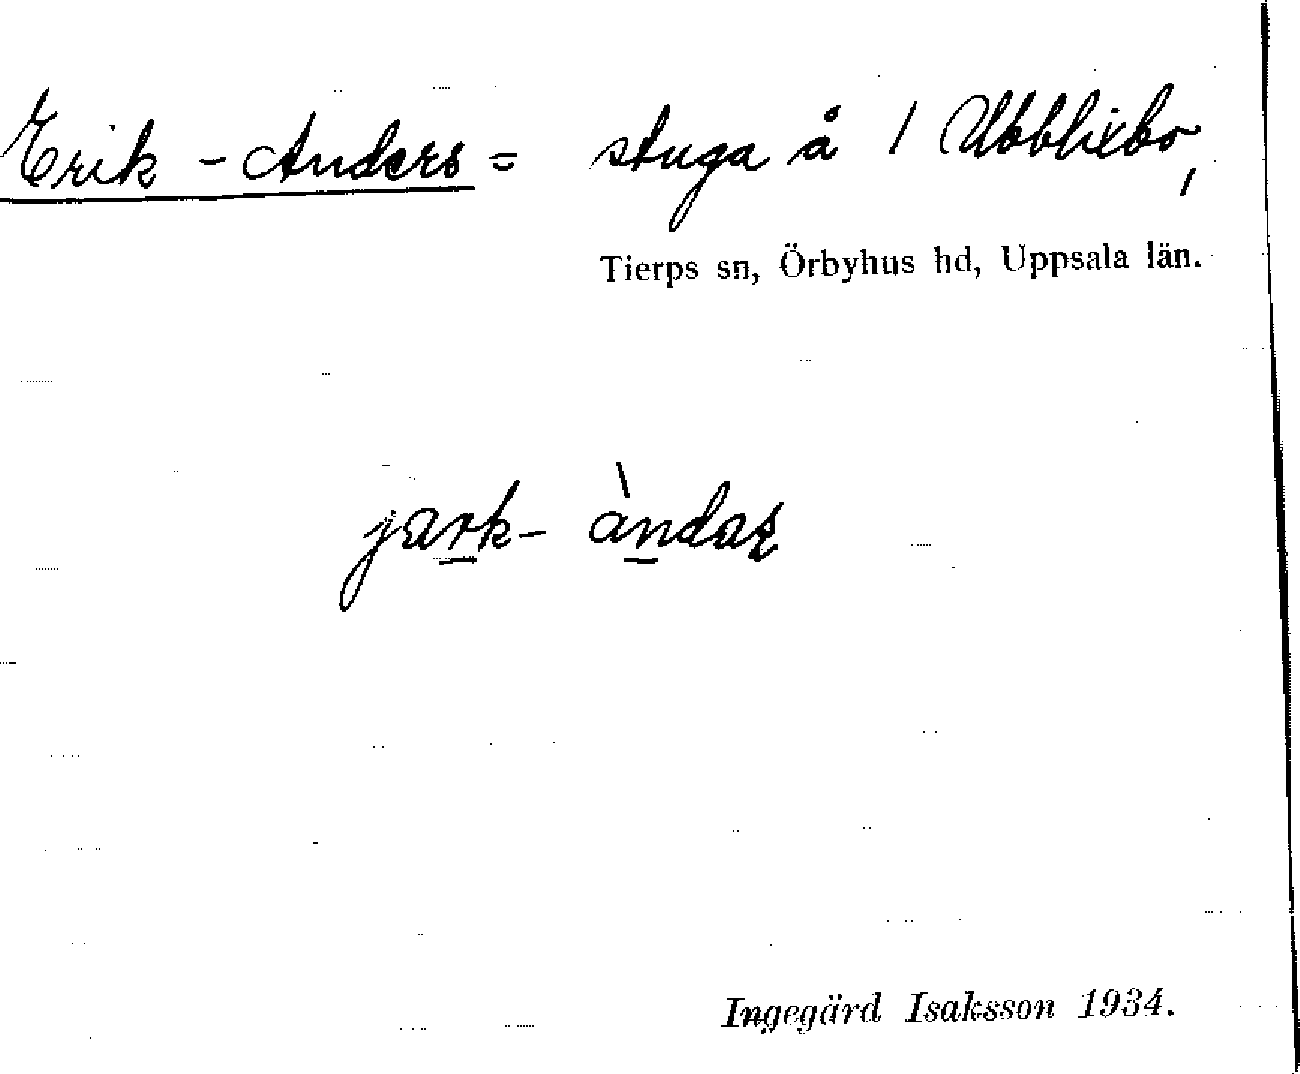 Erik-Anders= stuga å / Ubblixbo,
Tierps sn, Örbyhus hd, Uppsala län.
jark- àndaʂ
Ingegärd Isaksson 1934.